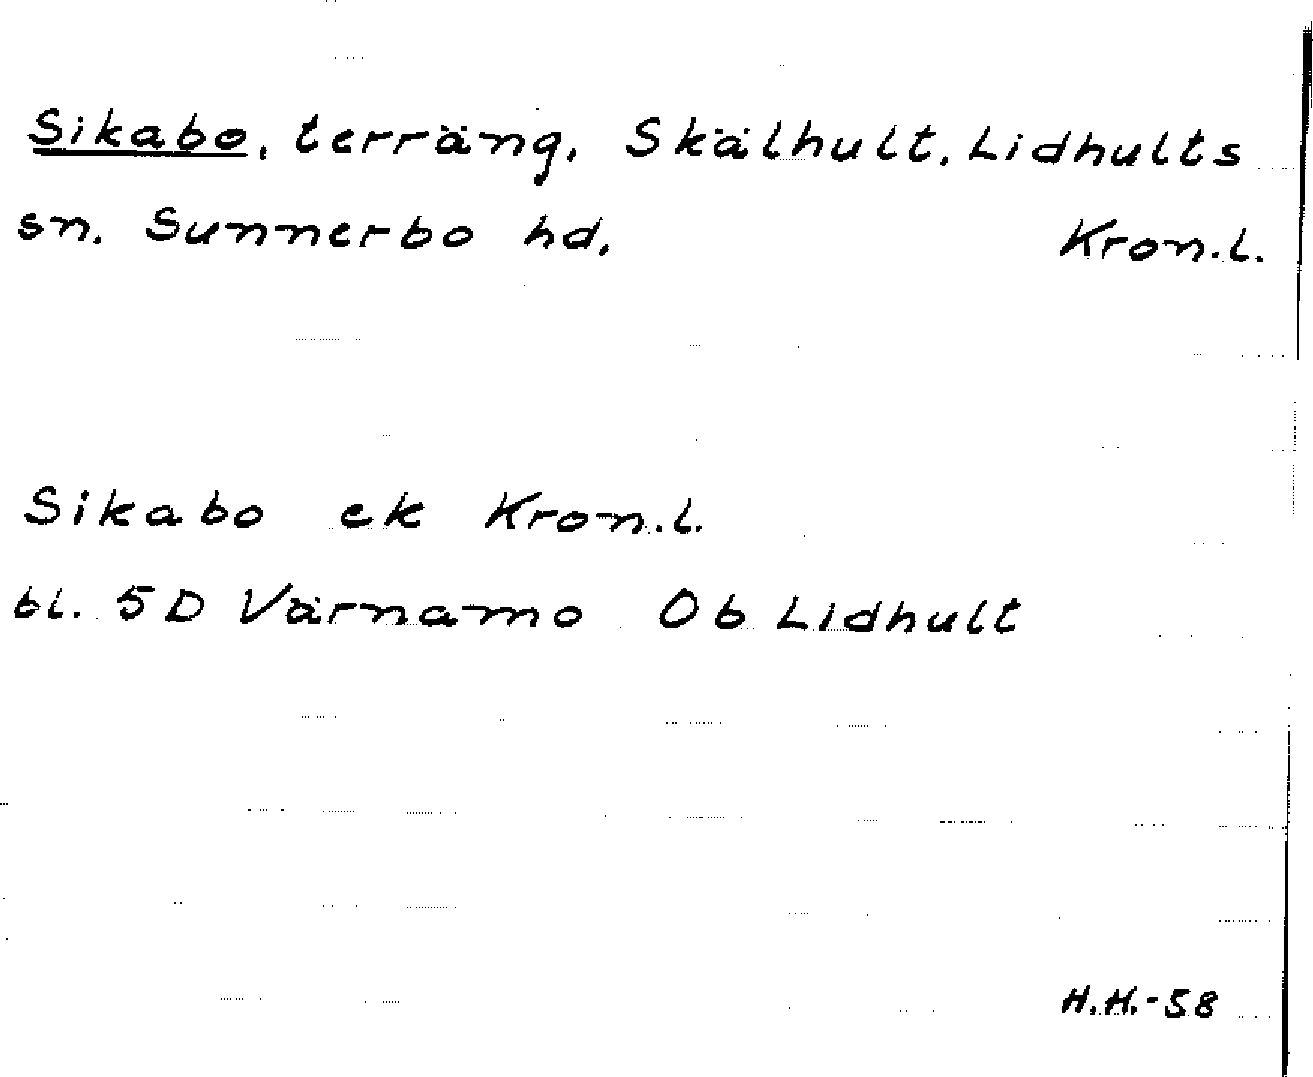 Sikabo, terräng, Skälhult, Lidhults
sn. Sunnerbo hd, Kron.l.
Sikabo ek Kron.l.
bl. 5D Värnamo Ob Lidhult
H.H.-58